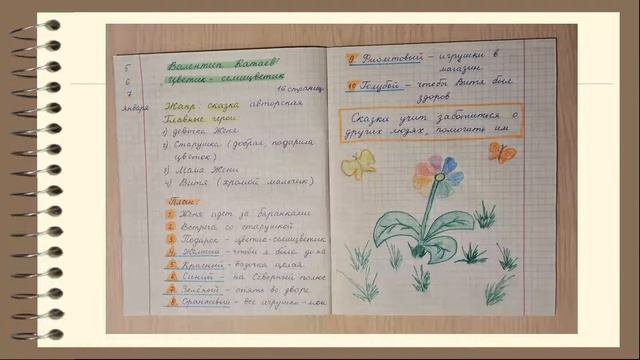 5
6
7
января
Валентин Катаев
Цветик-семицветик
16 страниц
Жанр: сказка авторская
Главные герои:
1) девочка Женя
2) Старушка (добрая, подарила
цветок)
3) Мама Жени
4) Витя (хромой мальчик)
План:
1 Женя идет за баранками
2 Встреча со старушкой
3 Подарок - цветик-семицветик
4 Жёлтый - чтобы я была дома
5 Красный - вазочка целая
6 Синий - на Северный полюс
7 Зелёный - опять во дворе
8 Оранжевый - все игрушки-мои
9 Фиолетовый - игрушки в
магазин
10 Голубой - чтобы Витя был
здоров
Сказка учит заботиться о
других людях, помогать им